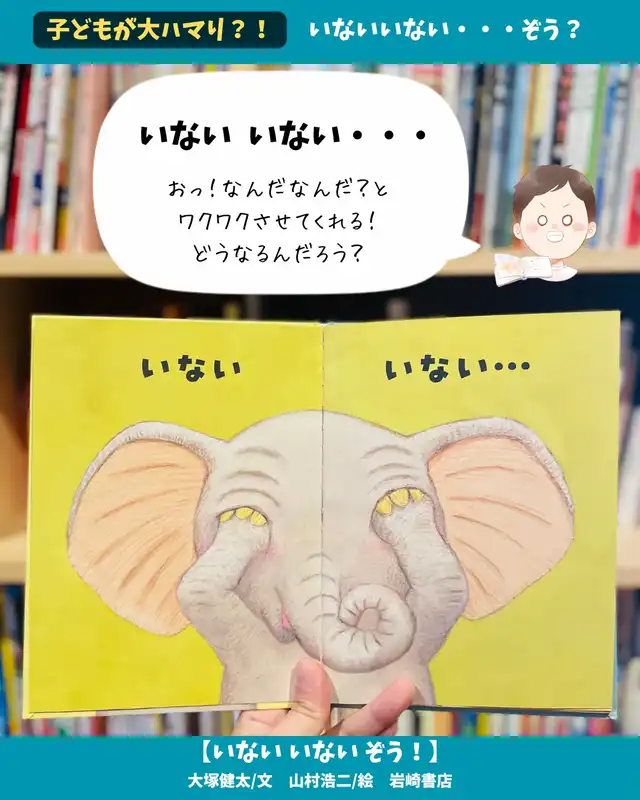 子どもが大ハマり?! いないいない・・・ぞう?
いない いない・・・
おっ!なんだなんだ?と
ワクワクさせてくれる!
どうなるんだろう?
いない いない・・・
【いない いない ぞう!】
大塚健太/文 山村浩二/絵 岩崎書店